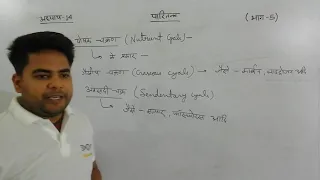 अध्याय-14 पारितंत्र (भाग-5)
पोषक चक्रण (Nutrient Cycle)-
→ ये प्रकार
गैसीय चक्रण (Gaseous cycle) → जैसे - कार्बन, नाइट्रोजन
अवसादी चक्र (Sendentary cycle)
→ जैसे - सल्फर, फास्फोरस आदि